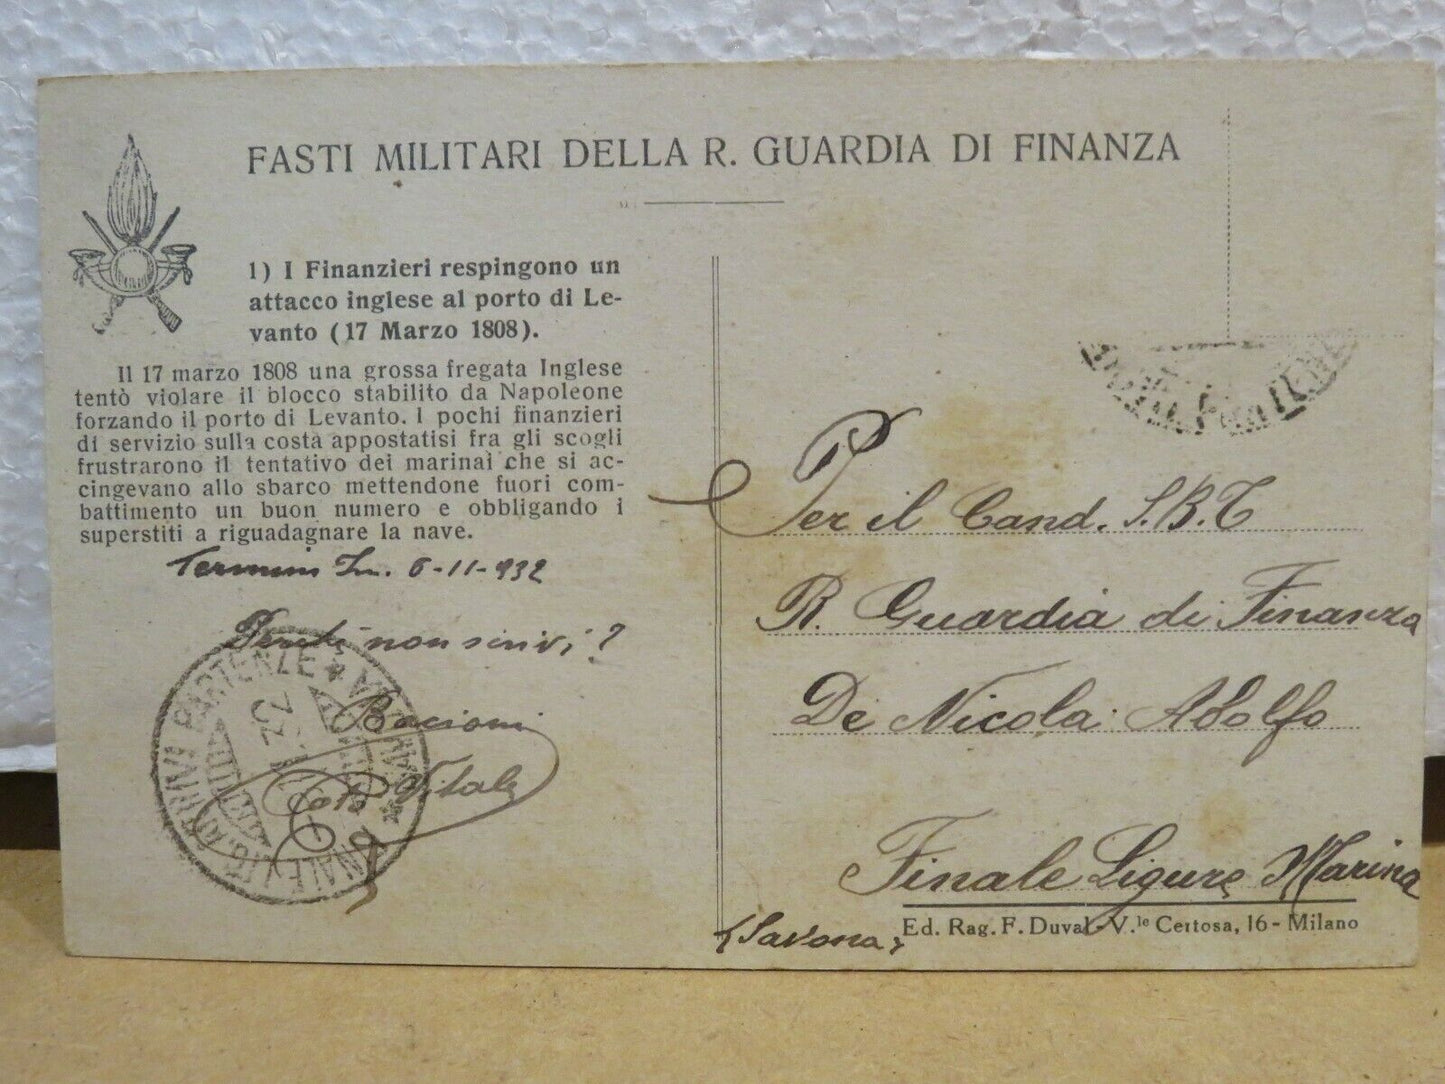 FASTI MILITARI DELLA R. GUARDIA DI FINANZA
1) I Finanzieri respingono un
attacco inglese al porto di Le-
vanto (17 Marzo 1808).
Il 17 marzo 1808 una grossa fregata Inglese
tentò violare il blocco stabilito da Napoleone
forzando il porto di Levanto. I pochi finanzieri
di servizio sulla costa appostatisi fra gli scogli
frustrarono il tentativo dei marinai che si ac-
cingevano allo sbarco mettendone fuori com-
battimento un buon numero e obbligando i
superstiti a riguadagnare la nave.
Termini Im. 6-11-932
non scrivi?
Bacioni
Vitale
ARRIVI PARTENZE
Per il Cand. S.B.T
R. Guardia di Finanza
De Nicola Adolfo
Finale Ligure Marina
(Savona)
Ed. Rag. F. Duval - V.le Certosa, 16 - Milano